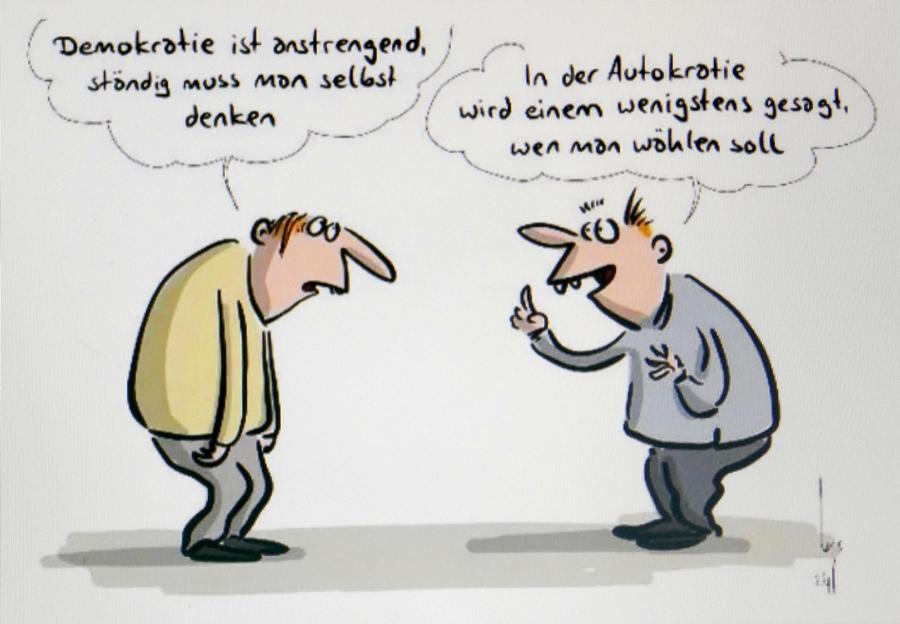 Demokratie ist anstrengend,
ständig muss man selbst
denken
In der Autokratie
wird einem wenigstens gesagt,
wen man wählen soll